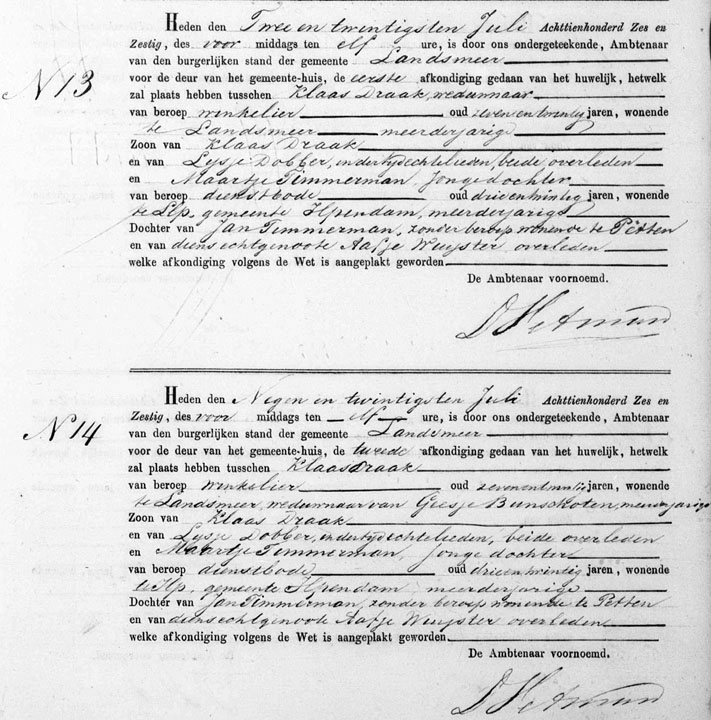 Heden den Twee en twintigsten Juli Achttienhonderd Zes en
Zestig, des voor middags ten elf ure, is door ons ondergeteekende, Ambtenaar
van den burgerlijken stand der gemeente Landsmeer
N 13
voor de deur van het gemeente-huis, de eerste afkondiging gedaan van het huwelijk, hetwelk
zal plaats hebben tusschen Klaas Draak, weduwnaar
van beroep winkelier oud zeven en twintig jaren, wonende
te Landsmeer meerderjarige
Zoon van Klaas Draak
en van Lysje Dobber, indertijd echtelieden, beide overleden
en Maartje Timmerman, Jonge dochter
van beroep dienstbode oud drie en twintig jaren, wonende
te Ilp, gemeente Ilpendam, meerderjarige
Dochter van Jan Timmerman, zonder beroep wonende te Petten
en van diens echtgenoote Aafje Wuijster overleden
welke afkondiging volgens de Wet is aangeplakt geworden
De Ambtenaar voornoemd.
Heden den Negen en twintigsten Juli Achttienhonderd Zes en
Zestig, des voor middags ten elf ure, is door ons ondergeteekende, Ambtenaar
N 14
van den burgerlijken stand der gemeente Landsmeer
voor de deur van het gemeente-huis, de tweede afkondiging gedaan van het huwelijk, hetwelk
zal plaats hebben tusschen Klaas Draak
van beroep winkelier oud zeven en twintig jaren, wonende
te Landsmeer, weduwnaar van Geesje Bunschoten, meerderjarige
Zoon van Klaas Draak
en van Lysje Dobber, indertijd echtelieden, beide overleden
en Maartje Timmerman, Jonge dochter
van beroep dienstbode oud drie en twintig jaren, wonende
te Ilp, gemeente Ilpendam meerderjarige
Dochter van Jan Timmerman, zonder beroep wonende te Petten
en van diens echtgenoote Aafje Wuijster overleden
welke afkondiging volgens de Wet is aangeplakt geworden.
De Ambtenaar voornoemd.